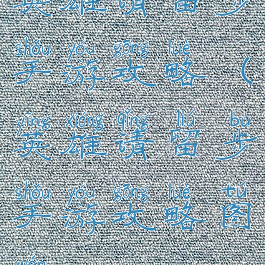 英雄请留步
shǒu yóu gōng lüè
手游攻略（
yīng xióng qǐng liú bù
英雄请留步
shǒu yóu gōng lüè tú
手游攻略图